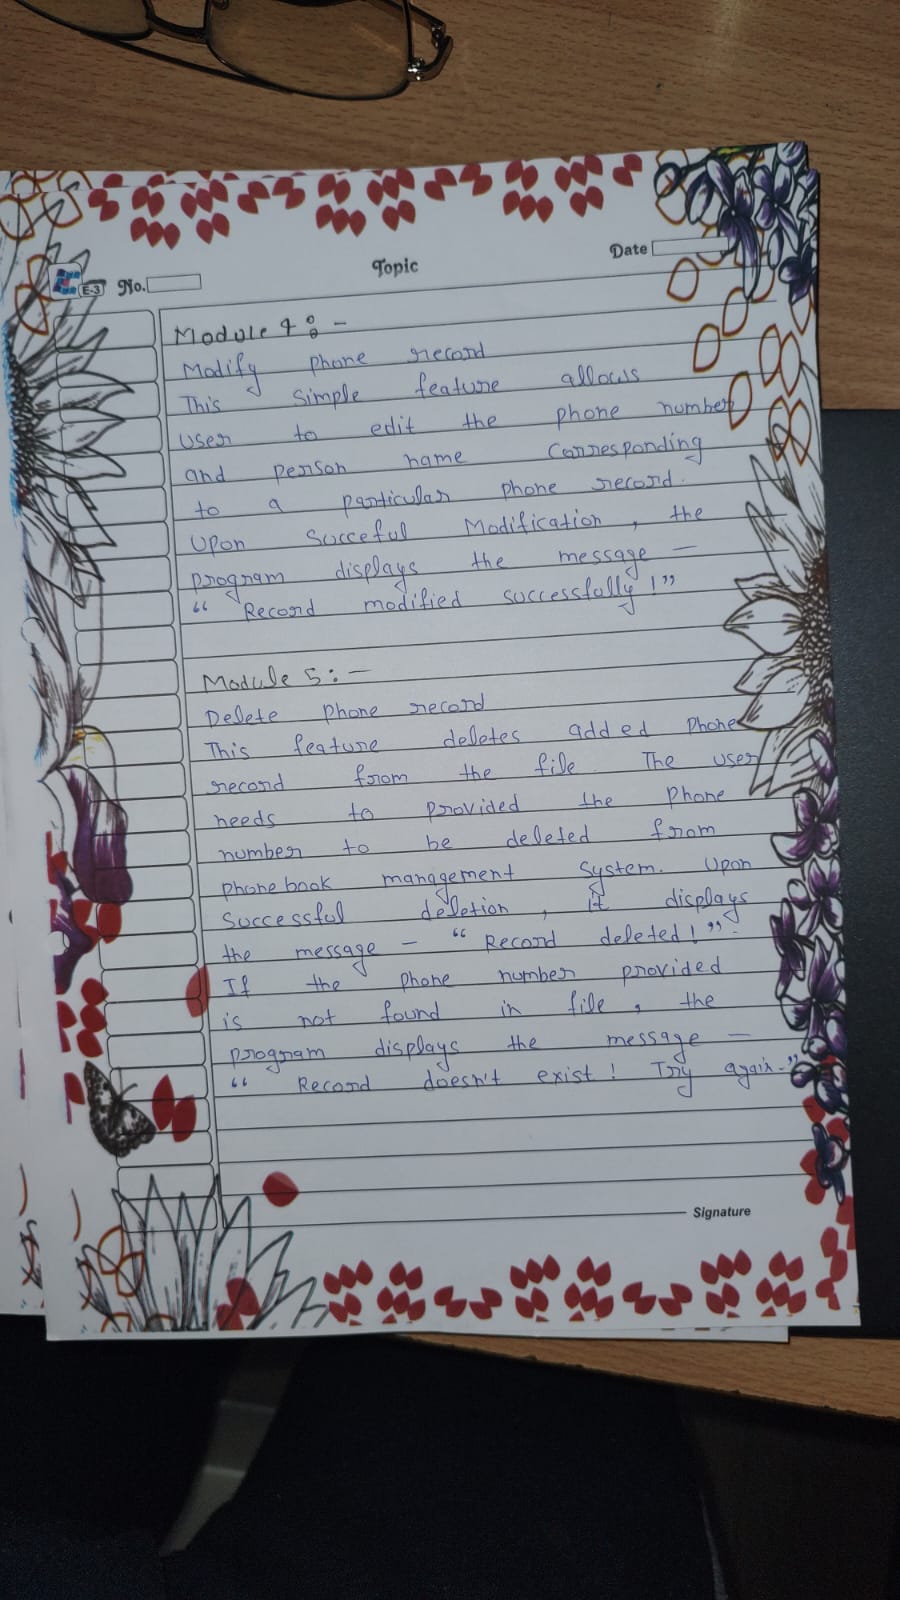 E-3 No.
Topic
Date
Module 4 :-
Modify phone record
This simple feature allows
user to edit the phone number
and person name corresponding
to a particular phone record.
Upon Succeful Modification, the
program displays the message –
“ Record modified successfully!”
Module 5:-
Delete phone record
This feature deletes added Phone
record from the file. The user
needs to provided the phone
number to be deleted from
phonebook management System. Upon
Successful deletion, it displays
the message – “ Record deleted!”.
If the phone number provided
is not found in file, the
program displays the message –
“ Record doesn't exist! Try again.”
Signature